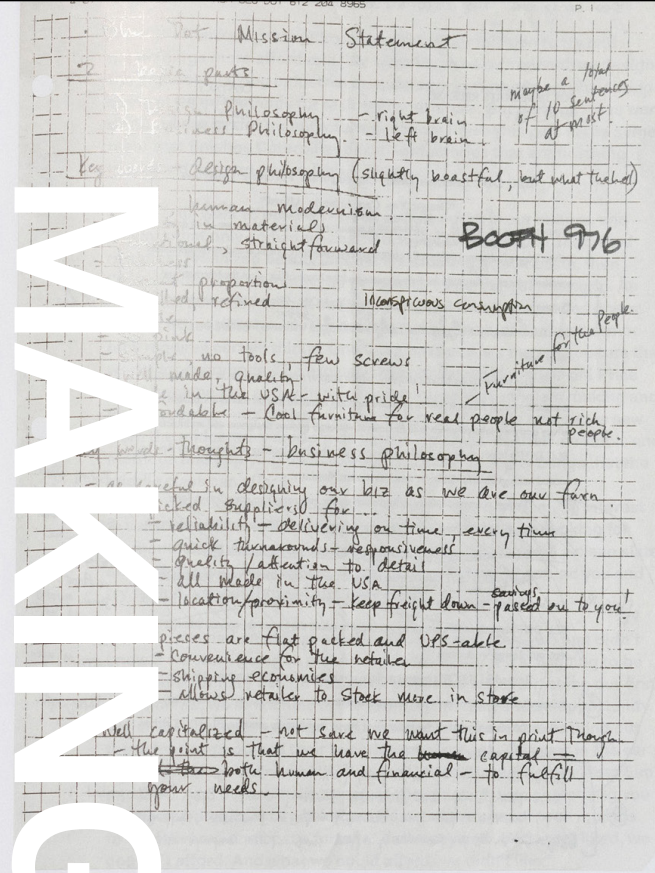 8965
P. 1
Dot Mission Statement
2 basic parts
maybe a total
of 10 sentences
at most.
Philosophy - right brain
Philosophy - Left brain.
Key design philosophy (slightly boastful, but what the hell)
human modernism
in materials
, straightforward
BOOTH 976
proportion
, refined
inconspicuous consumption
- simple, no tools, few screws
made, quality
in the USA - with pride!
- furniture for the people.
- Cool furniture for real people not rich
people.
words - thoughts - business philosophy
- as careful in designing our biz as we are our furn.
picked suppliers for...
- reliability - delivering on time, every time
- quick turnarounds - responsiveness
- quality/attention to detail
- all made in the USA
- location/proximity - keep freight down - savings passed on to you!
pieces are flat packed and UPS-able
- convenience for the retailer
- shipping economies
- allows retailer to stock more in store
Well capitalized - not sure we want this in print though
- the point is that we have the capital -
both human and financial - to fulfill
your needs.
MAKING